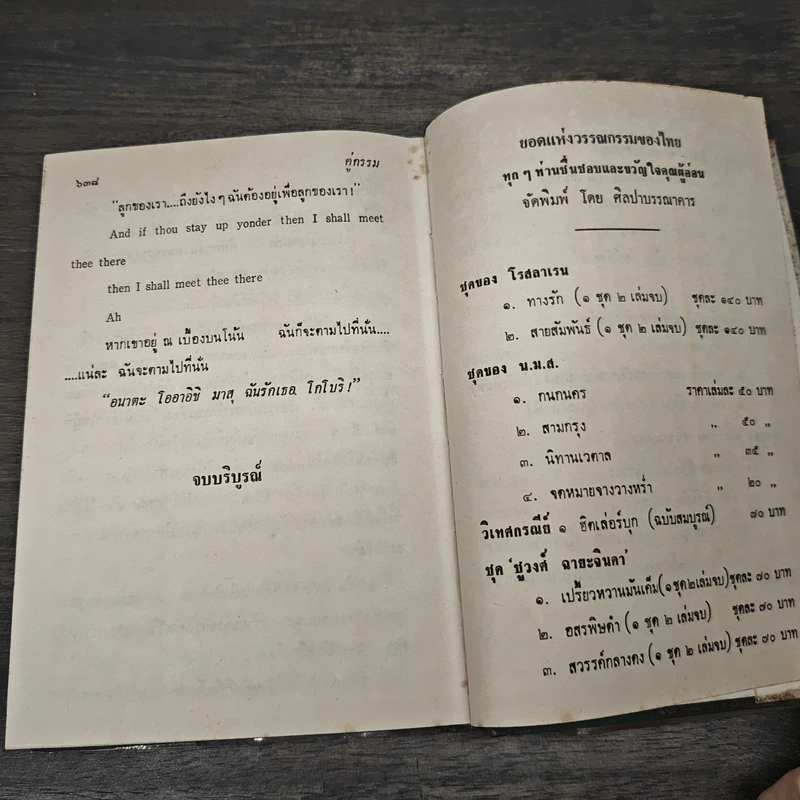 ๖๓๘
คู่กรรม
“ลูกของเรา....ถึงยังไง ๆ ฉันต้องอยู่เพื่อลูกของเรา !”
And if thou stay up yonder then I shall meet
thee there
then I shall meet thee there
Ah
หากเขาอยู่ ณ เบื้องบนโน้น ฉันก็จะตามไปที่นั่น....
....แน่ละ ฉันจะตามไปที่นั่น
“อนาตะ โออาอิชิ มาสุ ฉันรักเธอ โกโบริ !”
จบบริบูรณ์
ยอดแห่งวรรณกรรมของไทย
ทุก ๆ ท่านชื่นชอบและขวัญใจคุณผู้อ่อน
จัดพิมพ์ โดย ศิลปาบรรณาคาร
ชุดของ โรสลาเรน
๑. ทางรัก (๑ ชุด ๒ เล่มจบ) ชุดละ ๑๔๐ บาท
๒. สายสัมพันธ์ (๑ ชุด ๒ เล่มจบ) ชุดละ ๑๔๐ บาท
ชุดของ น.ม.ส.
๑. กนกนคร ราคาเล่มละ ๕๐ บาท
๒. สามกรุง ” ๕๐ ”
๓. นิทานเวตาล ” ๓๕ ”
๔. จดหมายจางวางหร่ำ ” ๒๐ ”
วิเทศกรณีย์ ๑ ฮิตเล่อร์บุก (ฉบับสมบูรณ์) ๗๐ บาท
ชุด ‘ชูวงศ์ ฉายะจินดา’
๑. เปรี้ยวหวานมันเค็ม (๑ชุด๒เล่มจบ) ชุดละ ๗๐ บาท
๒. อสรพิษดำ (๑ ชุด ๒ เล่มจบ) ชุดละ ๗๐ บาท
๓. สวรรค์กลางดง (๑ ชุด ๒ เล่มจบ) ชุดละ ๗๐ บาท